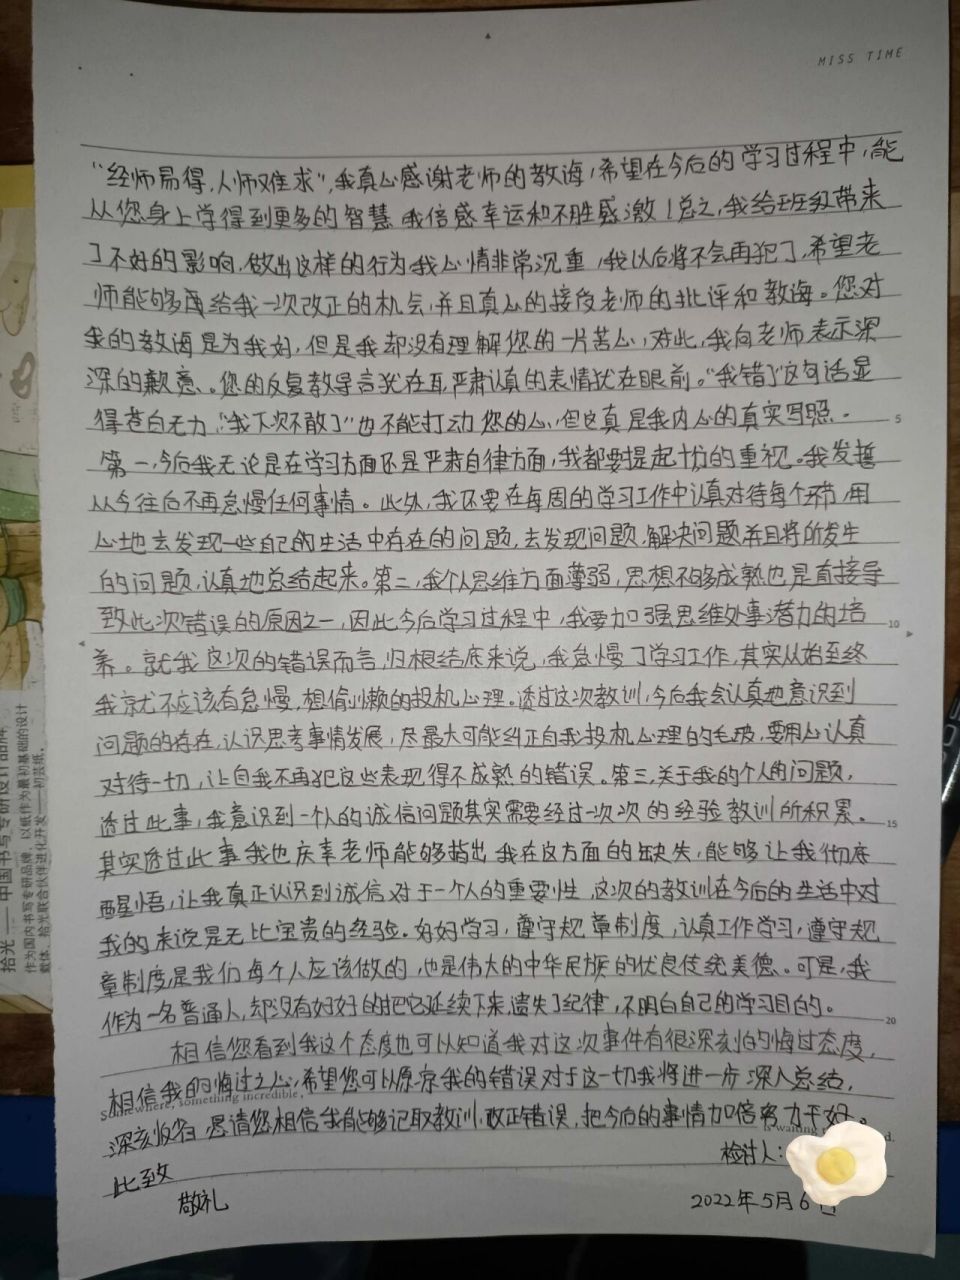 MISS TIME
“经师易得,人师难求”,我真心感谢老师的教诲,希望在今后的学习过程中,能
从您身上学得到更多的智慧 我倍感幸运和不胜感激!总之,我给班级带来
了不好的影响,做出这样的行为我心情非常沉重,我以后将不会再犯了,希望老
师能够再给我一次改正的机会,并且真心的接受老师的批评和教诲。您对
我的教诲是为我好,但是我却没有理解您的一片苦心,对此,我向老师表示深
深的歉意、。您的反复教导言犹在耳,严肃认真的表情犹在眼前。“我错了”这句话显
得苍白无力,“我下次不敢了”也不能打动您的心,但这真是我内心的真实写照。
5
第一,今后我无论是在学习方面还是严肃自律方面,我都要提起十分的重视。我发誓
从今往后不再怠慢任何事情。此外,我还要在每周的学习工作中认真对待每个环节,用
心地去发现一些自己的生活中存在的问题,去发现问题,解决问题并且将所发生
的问题,认真地总结起来。第二,我个人思维方面薄弱,思想不够成熟也是直接导
致此次错误的原因之一,因此今后学习过程中,我要加强思维处事潜力的培
10
养。就我这次的错误而言,归根结底来说,我怠慢了学习工作,其实从始至终
我就不应该有怠慢,想偷小懒的投机心理。透过这次教训,今后我会认真地意识到
问题的存在,认识思考事情发展,尽最大可能纠正自我投机心理的毛病,要用心认真
对待一切,让自我不再犯这些表现得不成熟的错误。第三,关于我的个人的问题,
透过此事,我意识到一个人的诚信问题其实需要经过一次次的经验教训所积累。
15
其实透过此事我也庆幸老师能够指出我在这方面的缺失,能够让我彻底
醒悟,让我真正认识到诚信对于一个人的重要性,这次的教训在今后的生活中对
我的来说是无比宝贵的经验。好好学习,遵守规章制度,认真工作学习,遵守规
章制度是我们每个人应该做的,也是伟大的中华民族的优良传统美德。可是,我
作为一名普通人,却没有好好的把它延续下来,遗失了纪律,不明白自己的学习目的。
20
相信您看到我这个态度也可以知道我对这次事件有很深刻的悔过态度,
相信我的悔过之心,希望您可以原谅我的错误对于这一切我将进一步深入总结,
Somewhere, something incredible
深刻反省 恳请您相信我能够记取教训,改正错误,把今后的事情加倍努力干好。
is waiting
检讨人:
此致
敬礼
2022年5月6日
拾光——中国书写专研设计品牌
作为国内书写专研品牌,以纸作为最初基础的设计